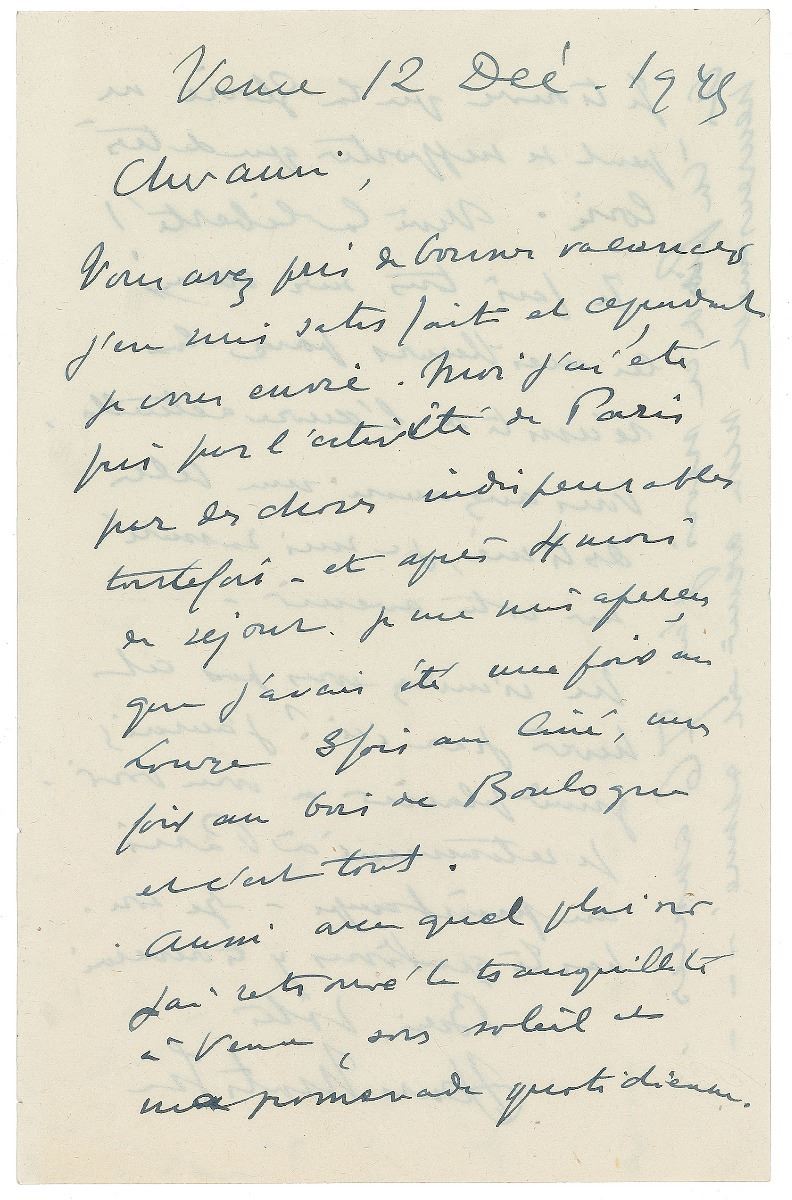 Vence 12 Déc - 1945
Cher ami,
Vous avez pris de bonnes vacances
j'en suis satisfait et cependant
je vous envie. Moi j'ai été
pris par l'activité de Paris
par des choses indispensables
toutefois - et après 4 mois
de séjour. je me suis aperçu
que j'avais été une fois au
Louvre 3 fois au Ciné, une
fois au bois de Boulogne
et c'est tout.
Aussi avec quel plaisir
j'ai retrouvé la tranquillité
à Vence, son soleil et
ma promenade quotidienne.